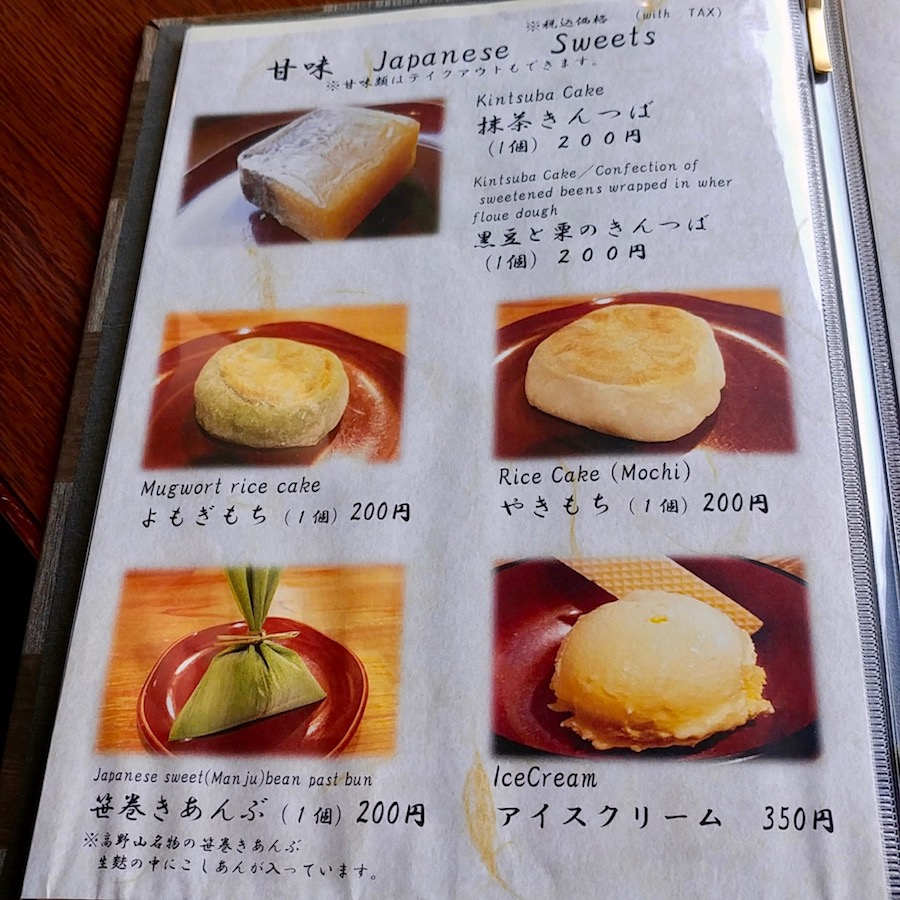 ※税込価格 (with TAX)
甘味 Japanese Sweets
※甘味類はテイクアウトもできます。
Kintsuba Cake
抹茶きんつば
(1個) 200円
Kintsuba Cake／Confection of
sweetened beens wrapped in wher
floue dough
黒豆と栗のきんつば
(1個) 200円
Mugwort rice cake
よもぎもち (1個) 200円
Rice Cake (Mochi)
やきもち (1個) 200円
Japanese sweet(Manju)bean past bun
笹巻きあんぶ (1個) 200円
※高野山名物の笹巻きあんぶ
生麩の中にこしあんが入っています。
IceCream
アイスクリーム 350円